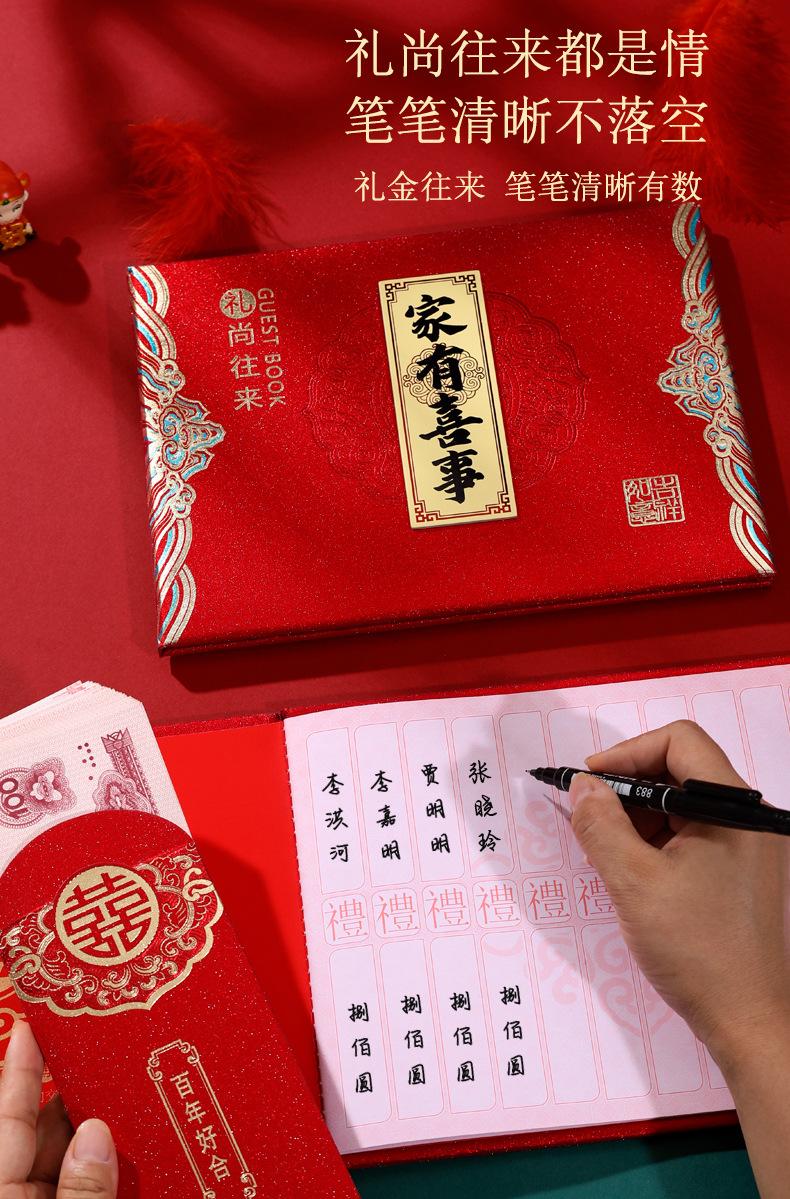 礼尚往来都是情
笔笔清晰不落空
礼金往来 笔笔清晰有数
礼尚往来
GUEST BOOK
家有喜事
吉祥如意
李洪河
李嘉明
贾明明
张晓玲
禮 禮 禮 禮 禮 禮
捌佰圆
捌佰圆
捌佰圆
捌佰圆
883
100
囍
百年好合